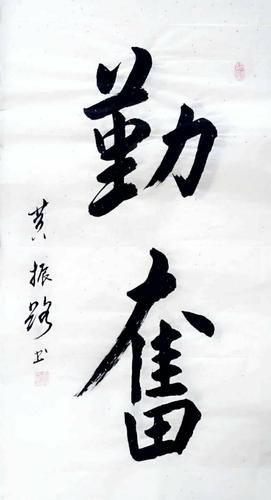 勤奮
黄振路书